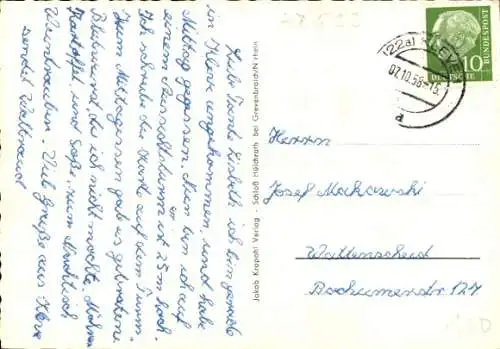 Liebe Tante Lisbeth ich bin gerade
in Kleve angekommen und habe
Mittag gegessen. Nun bin ich auf
einem Aussichtsturm ist 25 m hoch.
Ich schreibe die Karte auf dem Turm.
Zum Mittagessen gab es gebratene
Blutwurst die ich nicht mochte, Möhren
Kartoffel und Soße, zum Nachtisch
Weintrauben. Viel Grüße aus Kleve
sendet Waltraud
Jakob Krapohl Verlag - Schloß Hülchrath bei Grevenbroich/N'rhein
(22a) KLEVE
07.10.58-15
d
10
DEUTSCHE BUNDESPOST
Herrn
Josef Makowski
Wattenscheid
Bochumerstr 127